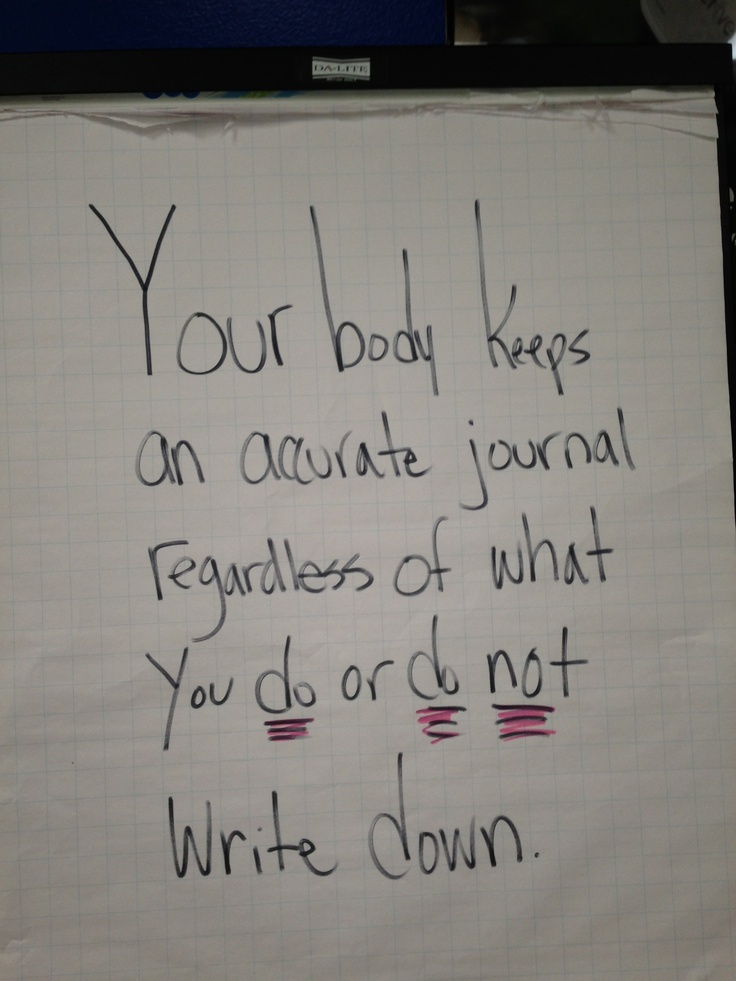 DA-LITE
Your body keeps
an accurate journal
regardless of what
You do or do not
Write down.